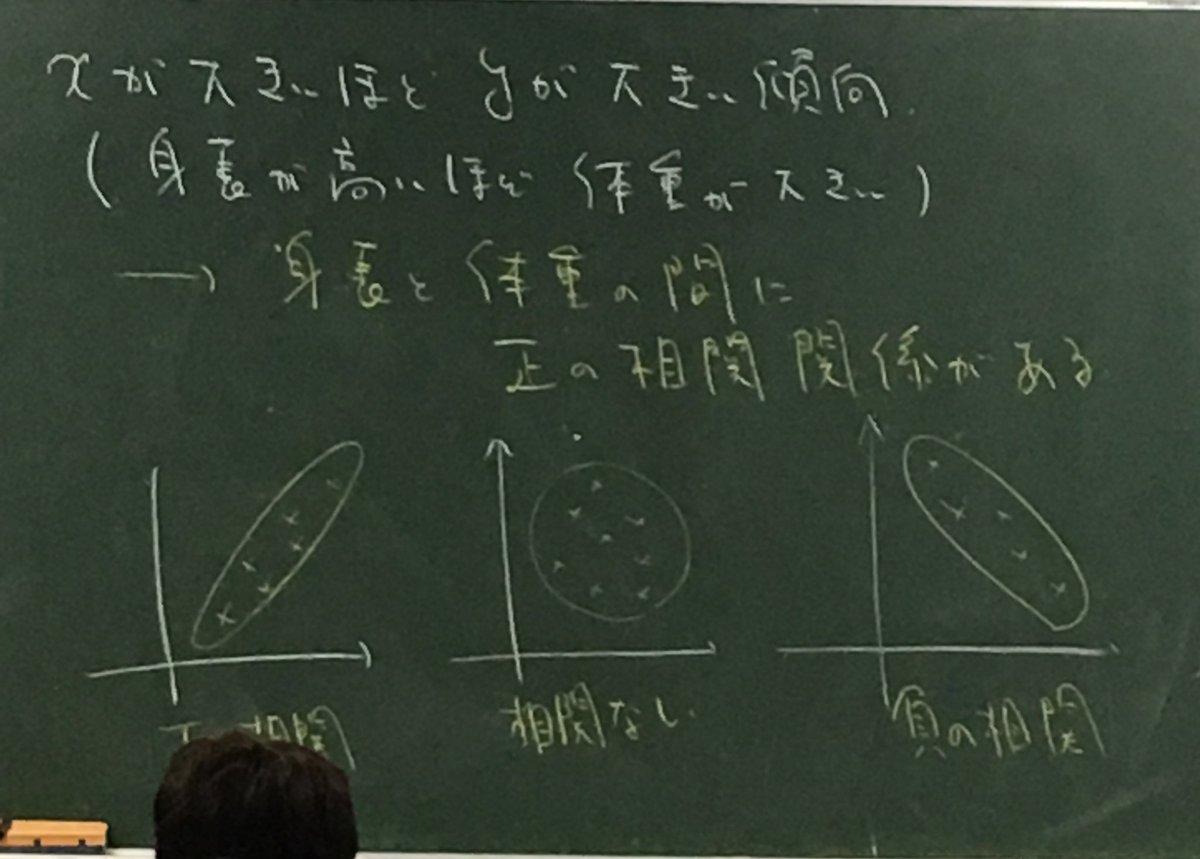 xが大きいほどyが大きい傾向.
(身長が高いほど 体重が大きい)
→ 身長と体重の間に
正の相関関係がある
正の相関
相関なし.
負の相関